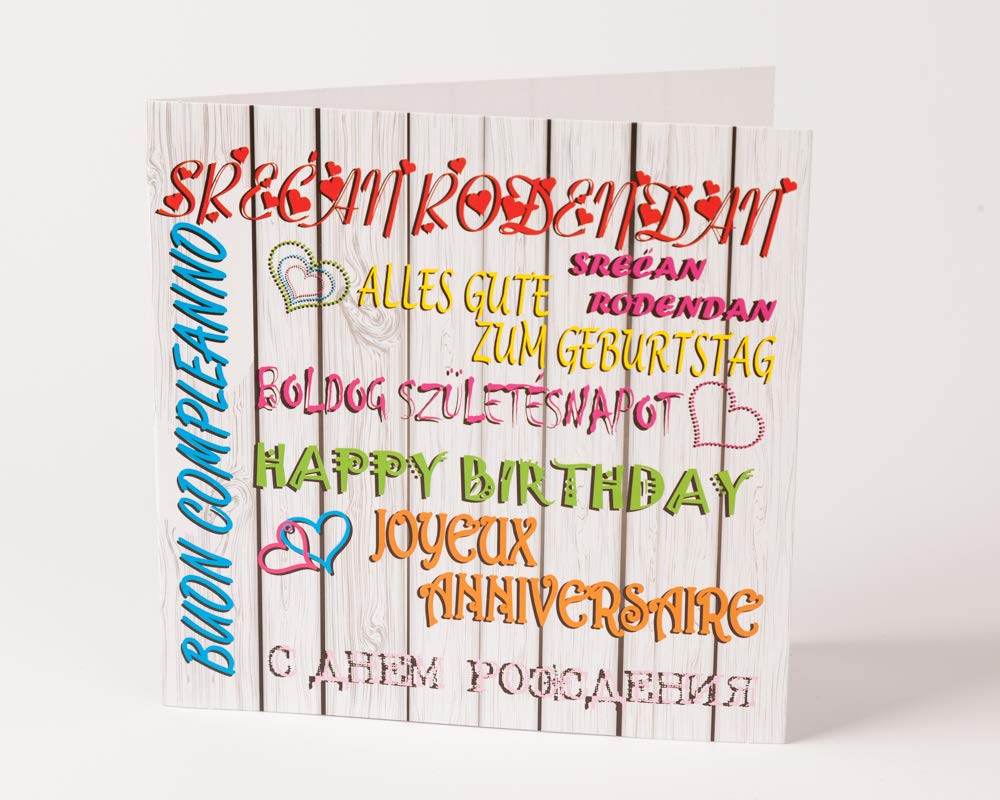 SREĆAN ROĐENDAN
BUON COMPLEANNO
ALLES GUTE
SREĆAN
RODENDAN
ZUM GEBURTSTAG
BOLDOG SZÜLETÉSNAPOT
HAPPY BIRTHDAY
JOYEUX
ANNIVERSAIRE
С ДНЕМ РОЖДЕНИЯ